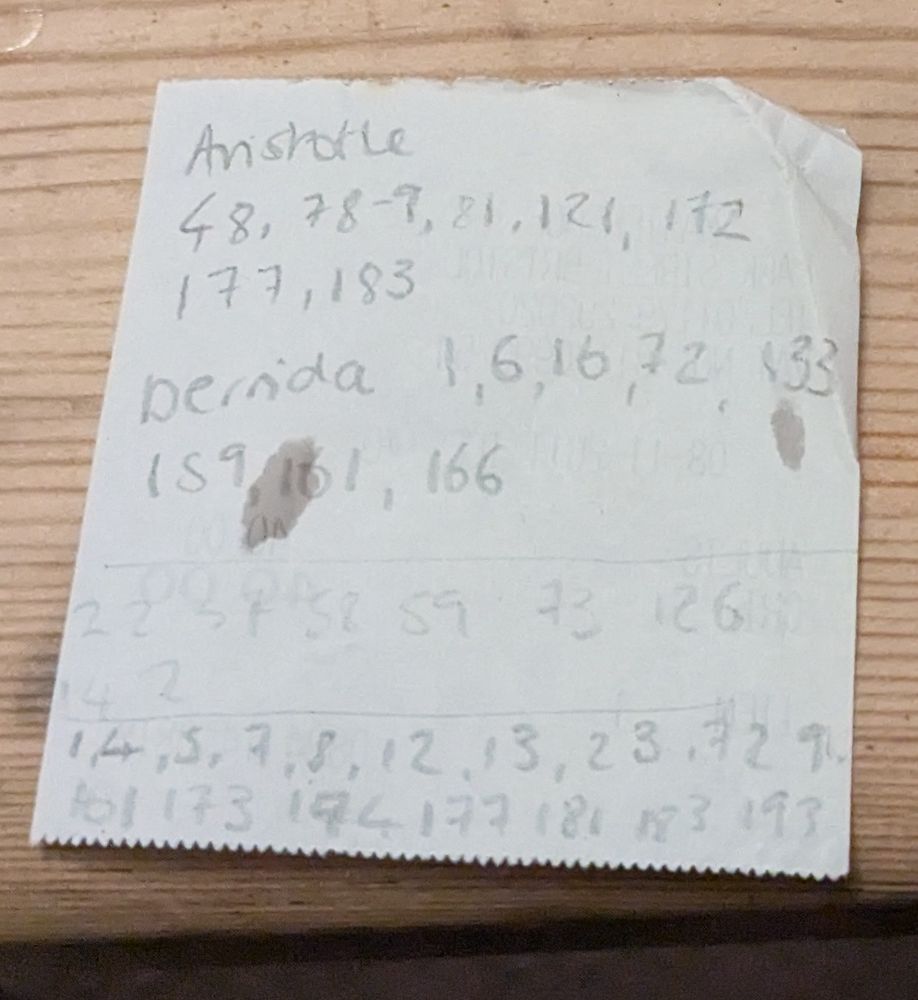 Aristotle
48, 78-9, 81, 121, 172
177, 183
Derrida 1, 6, 16, 72, 133
159, 161, 166
22 57 58 59 73 126
142
1, 4, 5, 7, 8, 12, 13, 23, 72
101 173 174 177 181 183 193